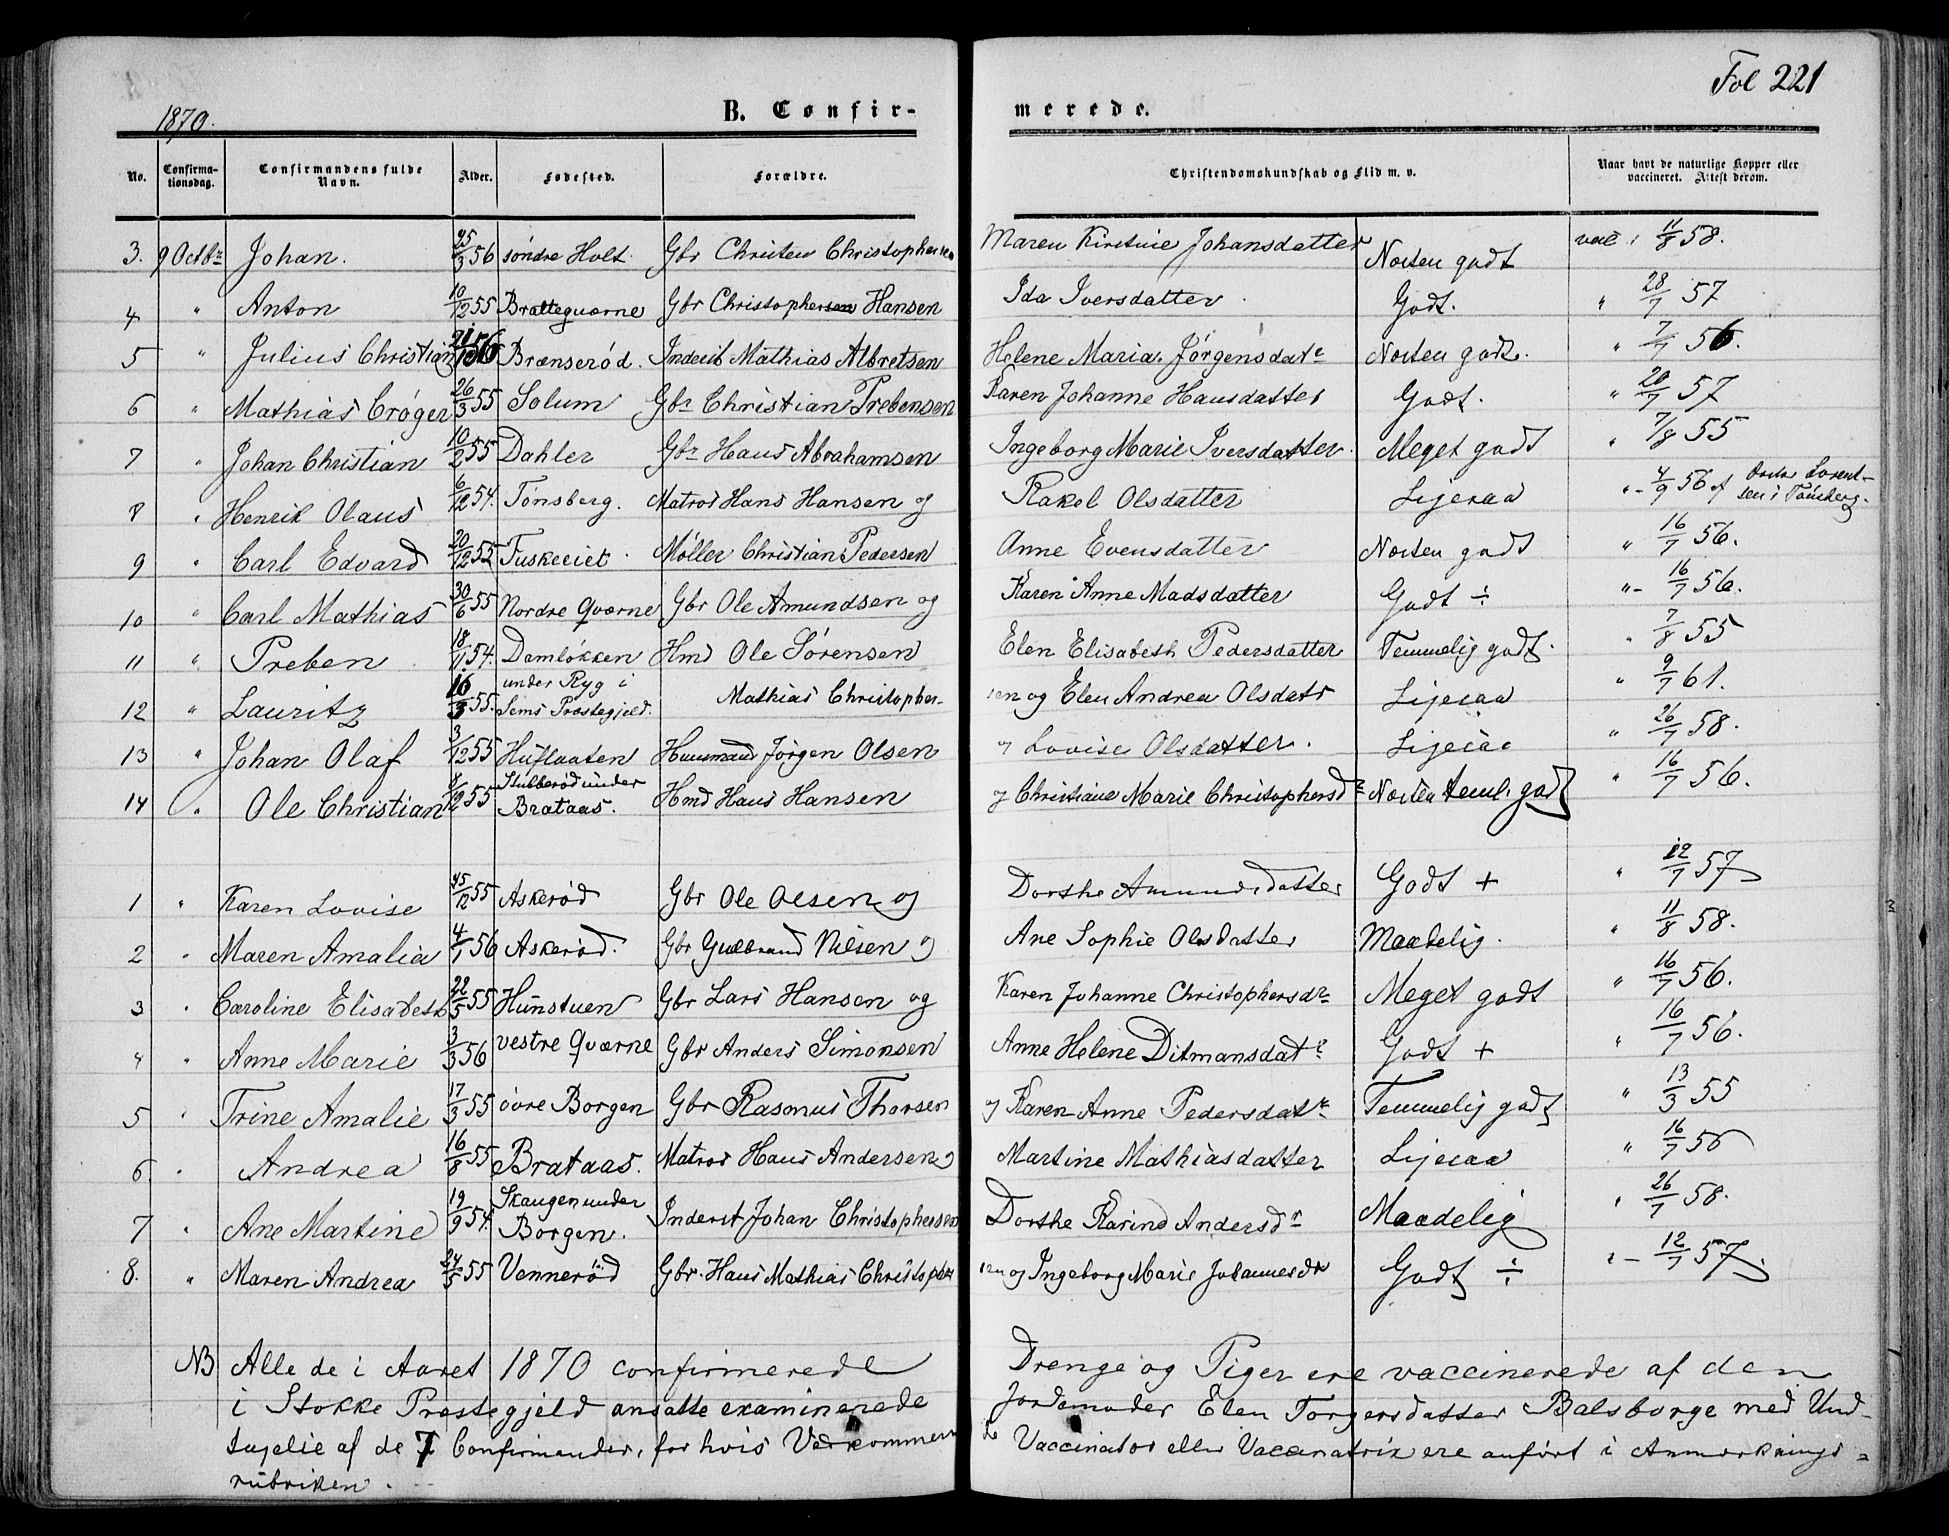 Fol 221
1870.
B. Confir-
merede.
No.
Confirma-
tionsdag.
Confirmandens fulde
Navn.
Alder.
Fødested.
Forældre.
Christendomskundskab og Flid m. v.
Naar havt de naturlige Kopper eller
vaccineret. Attest derom.
3. 9 Octbr Johan. 25/3 56 søndre Holt. Gbr Christen Christophersen Maren Kirstine Johansdatter Næsten godt vac. 11/8 58.
4 " Anton 10/12 55 Brattequærne Gbr Christophersen Hansen Ida Iversdatter Godt. " 28/7 57
5 " Julius Christian 21/1 56 Brænserød. Inderst Mathias Albretsen Helene Maria Jørgensdatr Næsten godt. " 7/7 56.
6 " Mathias Crøger 26/3 55 Solum Gbr Christian Prebensen Karen Johanne Hansdatter Godt. " 20/7 57
7 " Johan Christian 10/2 55 Dahler Gbr Hans Abrahamsen Ingeborg Marie Iversdatter. Meget godt " 7/8 55
8 " Henrik Olaus 6/12 54. Tønsberg. Matros Hans Hansen og Rakel Olsdatter Ligesaa "- 4/9 56 af Doctor Lorent-
sen i Tønsberg.
9 " Carl Edvard 20/12 55 Fuskeeiet. Møller Christian Pedersen Anne Evensdatter Næsten godt " 16/7 56.
10 " Carl Mathias 30/6 55 Nordre Quærne Gbr Ole Amundsen og Karen Anne Madsdatter Godt ÷ "- 16/7 56.
11 " Preben 18/11 54. Damløkken Hmd Ole Sørensen Elen Elisabeth Pedersdatter Temmelig godt. " 7/8 55
12 " Lauritz 16/3 55. under Ryg i
Sems Præstegjeld. Mathias Christopher-
sen og Elen Andrea Olsdatr Ligesaa " 9/7 61.
13 " Johan Olaf 3/12 55 Huflaaten Huusmand Jørgen Olsen og Lovise Olsdatter. Ligesaa " 26/7 58.
14 " Ole Christian 55 Stubberød under
Brataas. Hmd Hans Hansen og Christiane Marie Christophersdr Næsten teml. godt " 16/7 56.
1 " Karen Lovise 25/12 55 Askerød Gbr Ole Olsen og Dorthe Amundsdatter Godt + " 12/7 57
2 " Maren Amalia 4/1 56 Askerød. Gbr Gulbrand Nilsen og Ane Sophie Olsdatter Maadelig. " 11/8 58.
3 " Caroline Elisabeth 22/5 55 Hunstuen Gbr Lars Hansen og Karen Johanne Christophersdr Meget godt " 16/7 56.
4 " Anne Marie 3/3 56 vestre Quærne Gbr Anders Simonsen Anne Helene Ditmansdatr Godt + " 16/7 56.
5 " Trine Amalie 17/3 55 øvre Borgen Gbr Rasmus Thorsen og Karen Anne Pedersdatr Temmelig godt " 13/3 55
6. " Andrea 16/8 55 Brataas. Matros Hans Andersen og Martine Mathiasdatter Ligesaa " 16/7 56
7 " Ane Martine 19/9 54. Skaugen under
Borgen. Inderst Johan Christophersen Dorthe Karine Andersdr Maadelig " 26/7 58.
8. " Maren Andrea 55 Vennerød Gbr. Hans Mathias Christopher
sen og Ingeborg Marie Johannesdr Godt ÷ "- 12/7 57.
NB Alle de i Aaret 1870 confirmerede Drenge og Piger ere vaccinerede af den
i Stokke Præstegjeld ansatte examinerede Jordemoder Elen Torgersdatter Balsborge med Und-
tagelse af de 7 Confirmander, for hvis Vedkommen
de Vaccinator eller Vaccinatrix ere anført i Anmærknings-
rubriken.